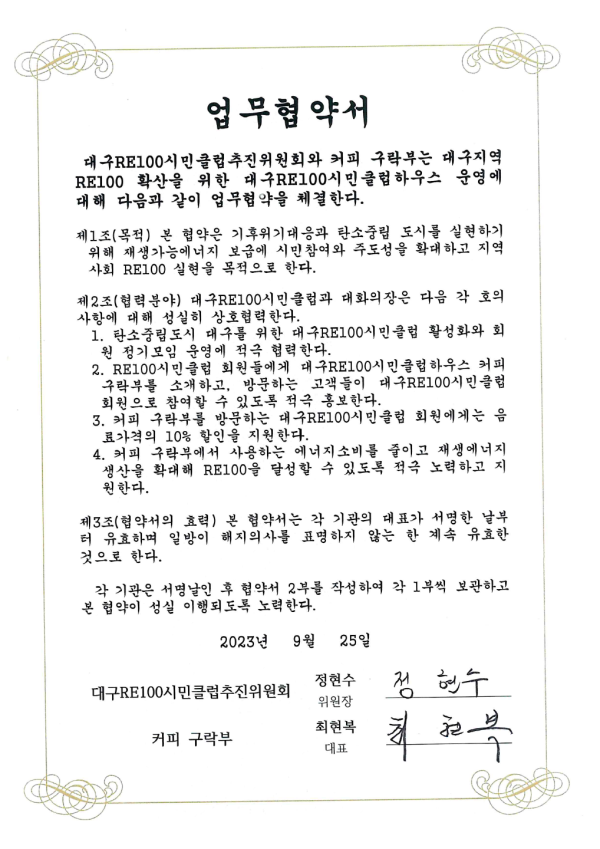 업무협약서
대구RE100시민클럽추진위원회와 커피 구락부는 대구지역
RE100 확산을 위한 대구RE100시민클럽하우스 운영에
대해 다음과 같이 업무협약을 체결한다.
제1조(목적) 본 협약은 기후위기대응과 탄소중립 도시를 실현하기
위해 재생가능에너지 보급에 시민참여와 주도성을 확대하고 지역
사회 RE100 실현을 목적으로 한다.
제2조(협력분야) 대구RE100시민클럽과 대화의장은 다음 각 호의
사항에 대해 성실히 상호협력한다.
1. 탄소중립도시 대구를 위한 대구RE100시민클럽 활성화와 회
원 정기모임 운영에 적극 협력한다.
2. RE100시민클럽 회원들에게 대구RE100시민클럽하우스 커피
구락부를 소개하고, 방문하는 고객들이 대구RE100시민클럽
회원으로 참여할 수 있도록 적극 홍보한다.
3. 커피 구락부를 방문하는 대구RE100시민클럽 회원에게는 음
료가격의 10% 할인을 지원한다.
4. 커피 구락부에서 사용하는 에너지소비를 줄이고 재생에너지
생산을 확대해 RE100을 달성할 수 있도록 적극 노력하고 지
원한다.
제3조(협약서의 효력) 본 협약서는 각 기관의 대표가 서명한 날부
터 유효하며 일방이 해지의사를 표명하지 않는 한 계속 유효한
것으로 한다.
각 기관은 서명날인 후 협약서 2부를 작성하여 각 1부씩 보관하고
본 협약이 성실 이행되도록 노력한다.
2023년 9월 25일
대구RE100시민클럽추진위원회 정현수 정현수
위원장
커피 구락부 최현복 최현복
대표